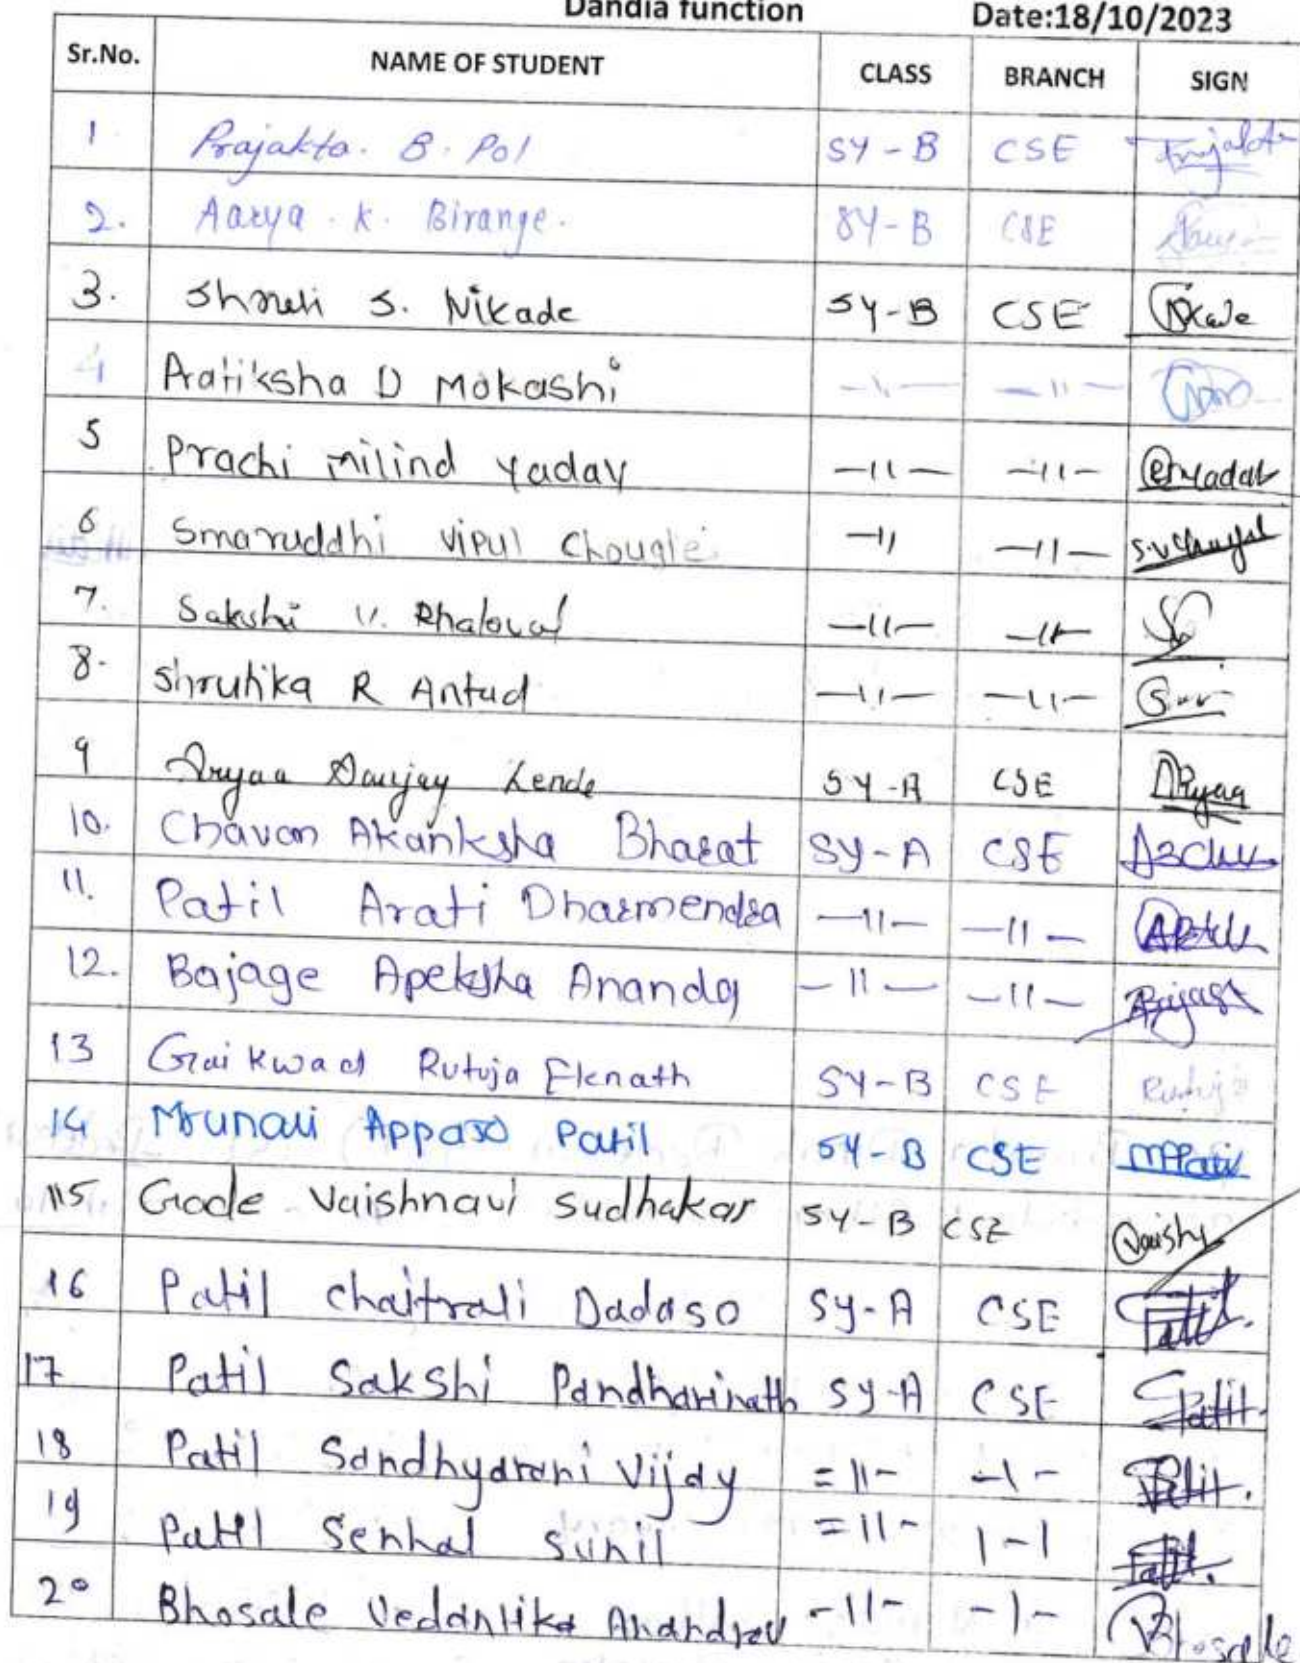 Dandia function Date:18/10/2023
Sr.No. NAME OF STUDENT CLASS BRANCH SIGN
1 Prajakta. B. Pol SY-B CSE Prajakta
2. Aarya. K. Birange. SY-B CSE
3. Shruti S. Nikade SY-B CSE
4 Aatiksha D Mokashi -11- -11-
5 Prachi milind Yadav -11- -11- Yadav
6 Smaruddhi Vipul Chougle -11 -11-
7. Sakshi V. -11- -11-
8. Shrutika R Antad -11- -11-
9 Aryaa Sanjay Lende SY-A CSE Aryaa
10. Chavan Akanksha Bharat SY-A CSE
11. Patil Arati Dharmendra -11- -11-
12. Bajage Apeksha Ananda -11- -11- Bajage
13 Gaikwad Rutuja Eknath SY-B CSE Rutuja
14 Mrunali Appaso Patil SY-B CSE MPatil
15 Gode Vaishnavi Sudhakar SY-B CSE Vaishu
16 Patil Chaitrali Dadaso SY-A CSE Patil.
17 Patil Sakshi Pandharinath SY-A CSE Patil.
18 Patil Sandhyarani Vijay =11- -1- Patil.
19 Patil Senhal Sunil =11- 1-1 Patil.
20 Bhosale Vedantika Anandrav -11- -1- Bhosale